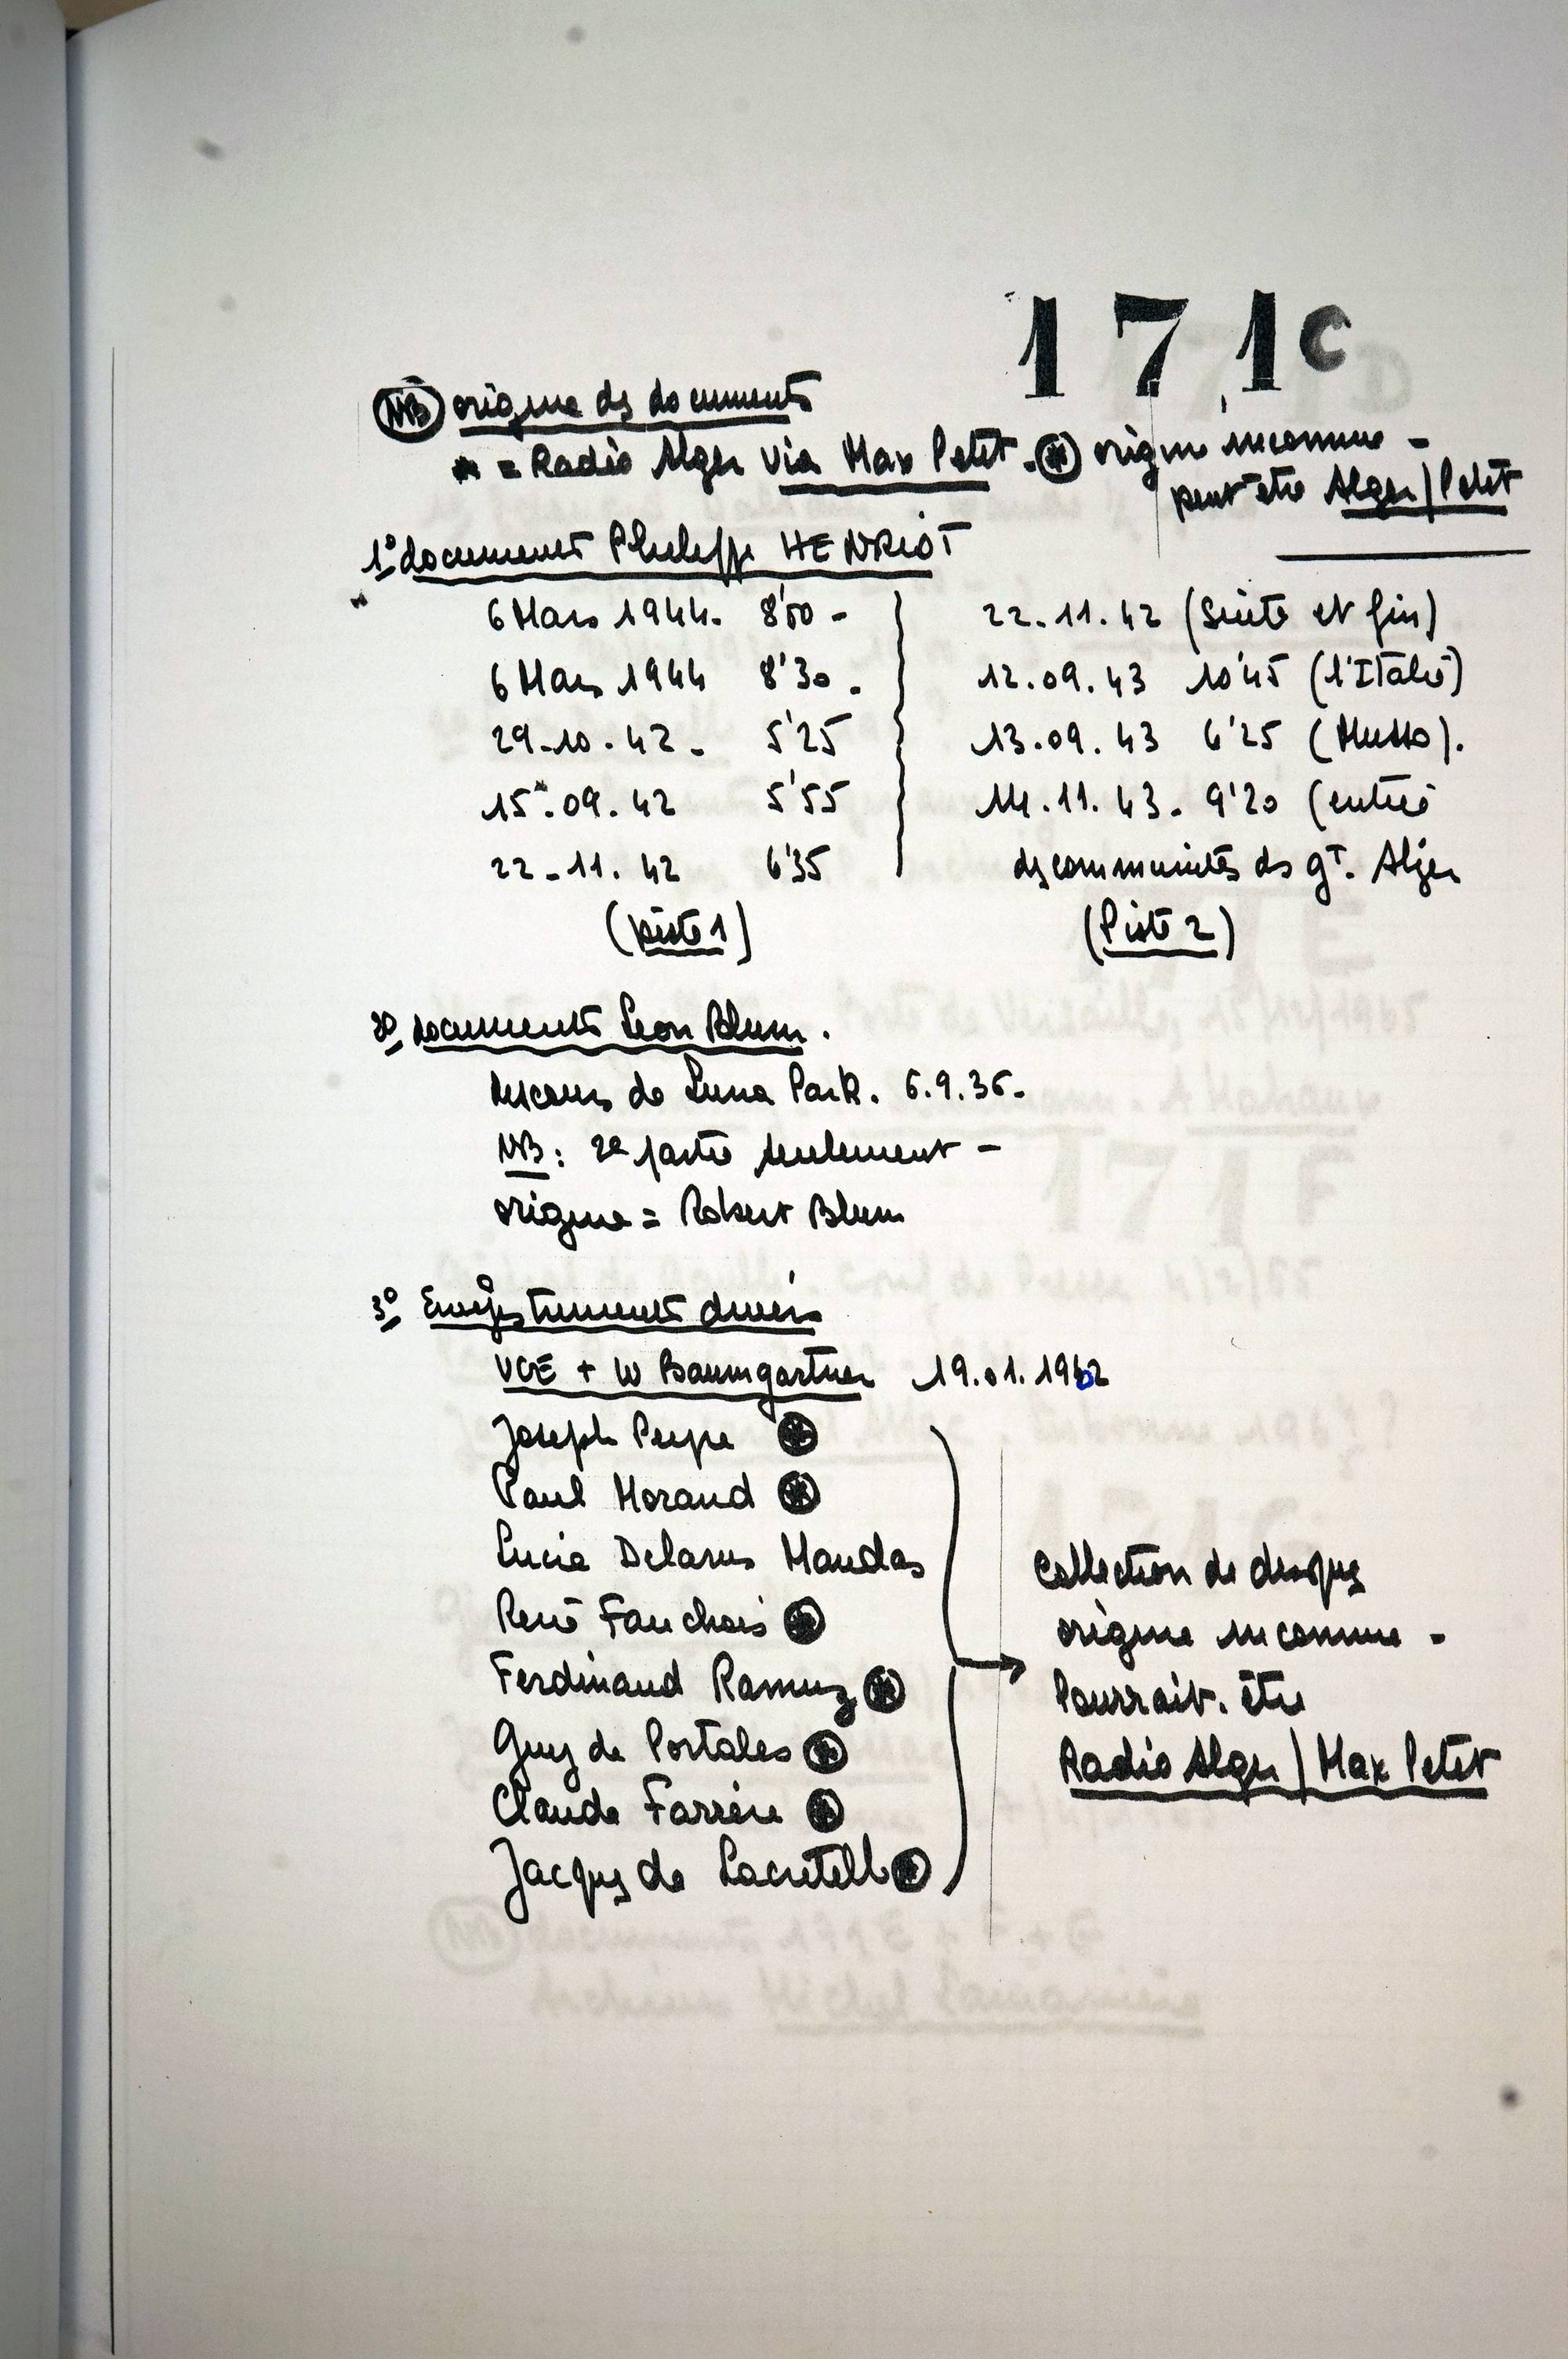 171C
NB origine des documents
* = Radio Alger via Max Petit. (*) origine inconnue -
peut être Alger/Petit
1° documents Philippe HENRIOT
6 Mars 1944. 8'50 -
6 Mars 1944 8'30.
29-10.42. 5'25
15.09.42 5'55
22-11.42 6'35
(piste 1)
22.11.42 (Suite et fin)
12.09.43 10'45 (l'Italie)
13.09.43 6'25 (Musso).
14.11.43. 9'20 (entrée
des communistes ds gt. Alger
(Piste 2)
2° documents Leon Blum.
discours de Luna Park. 6.9.36.
NB: 2e partie seulement -
origine = Robert Blum
3° Enregistrements divers
VGE + W Baumgartner 19.01.1962
Joseph Peyre (*)
Paul Morand (*)
Lucie Delarue Mardrus
René Fauchois (*)
Ferdinand Ramuz (*)
Guy de Portales (*)
Claude Farrère (*)
Jacques de Lacretelle (*)
Collection de disques
origine inconnue -
Pourrait. être
Radio Alger/Max Petit